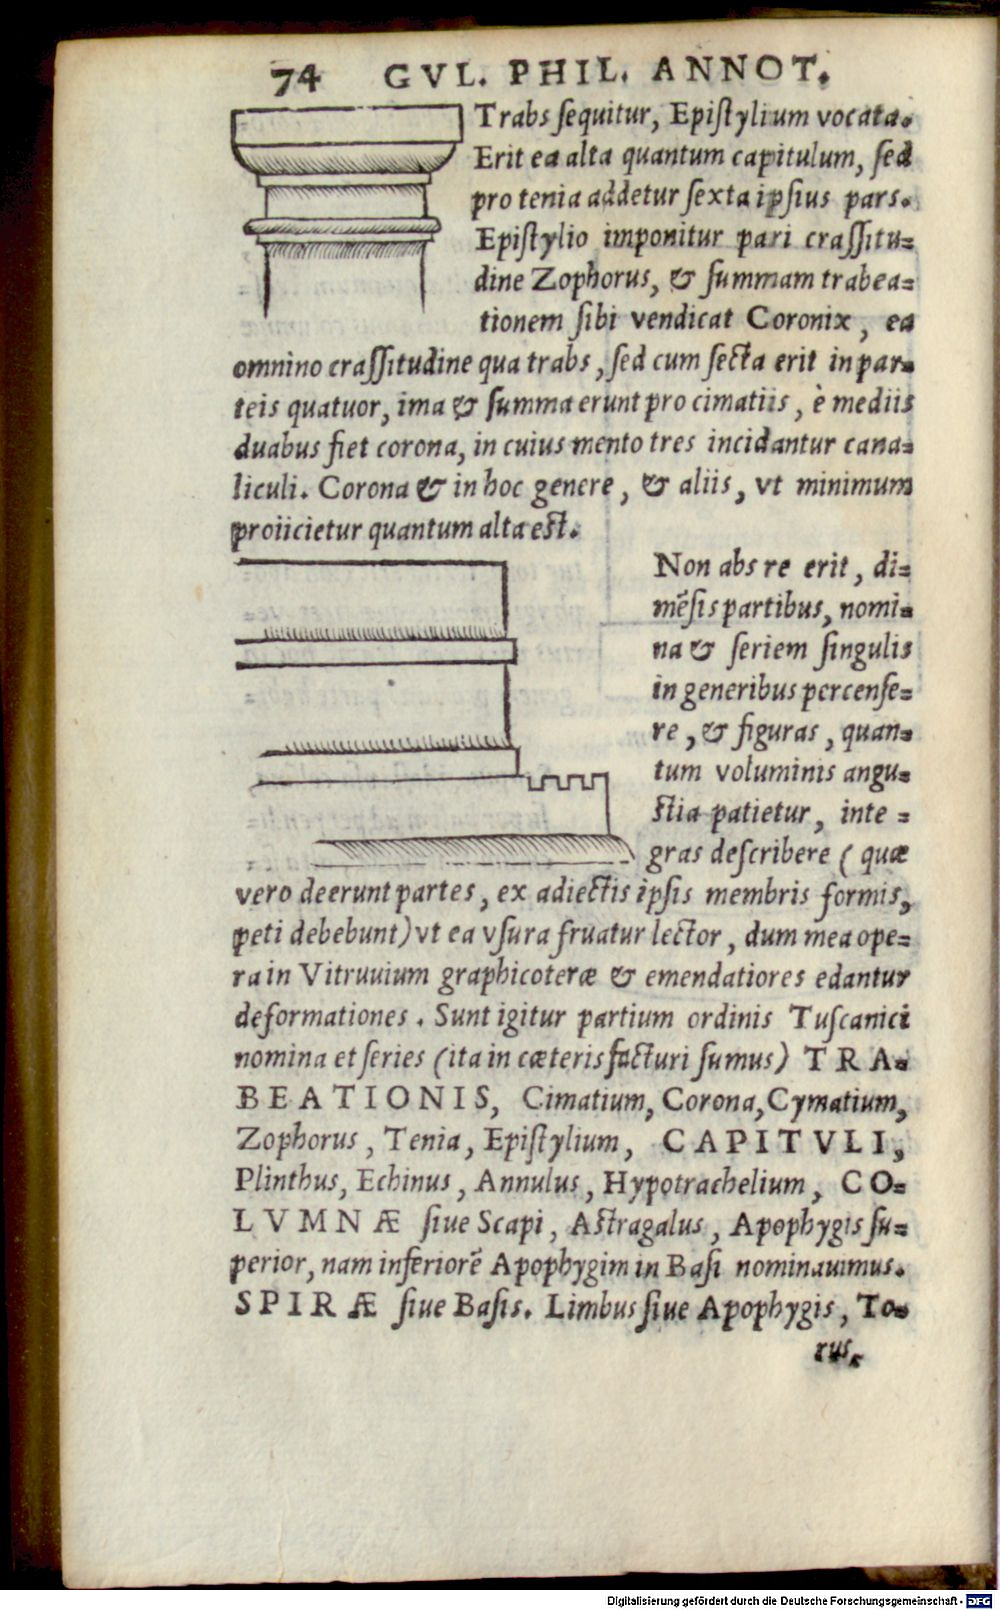 74 GVL. PHIL. ANNOT.
Trabs ſequitur, Epiſtylium vocata.
Erit ea alta quantum capitulum, ſed
pro tenia addetur ſexta ipſius pars.
Epiſtylio imponitur pari craſſitu=
dine Zophorus, & ſummam trabea=
tionem ſibi vendicat Coronix, ea
omnino craſſitudine qua trabs, ſed cum ſecta erit in par=
teis quatuor, ima & ſumma erunt pro cimatiis, è mediis
duabus fiet corona, in cuius mento tres incidantur cana=
liculi. Corona & in hoc genere, & aliis, vt minimum
proiicietur quantum alta est.
Non abs re erit, di=
mēſis partibus, nomi=
na & ſeriem ſingulis
in generibus percenſe=
re, & figuras, quan=
tum voluminis angu=
ſtia patietur, inte=
gras deſcribere (quæ
vero deerunt partes, ex adiectis ipſis membris formis,
peti debebunt) vt ea vſura fruatur lector, dum mea ope=
ra in Vitruuium graphicoteræ & emendatiores edantur
deformationes. Sunt igitur partium ordinis Tuſcanici
nomina et ſeries (ita in cæteris facturi ſumus) TRA=
BEATIONIS, Cimatium, Corona, Cymatium,
Zophorus, Tenia, Epiſtylium, CAPITVLI,
Plinthus, Echinus, Annulus, Hypotrachelium, CO=
LVMNÆ ſiue Scapi, Aſtragalus, Apophygis ſu=
perior, nam inferiorē Apophygim in Baſi nominauimus.
SPIRÆ ſiue Baſis. Limbus ſiue Apophygis, To=
rus,
Digitalisierung gefördert durch die Deutsche Forschungsgemeinschaft - DFG